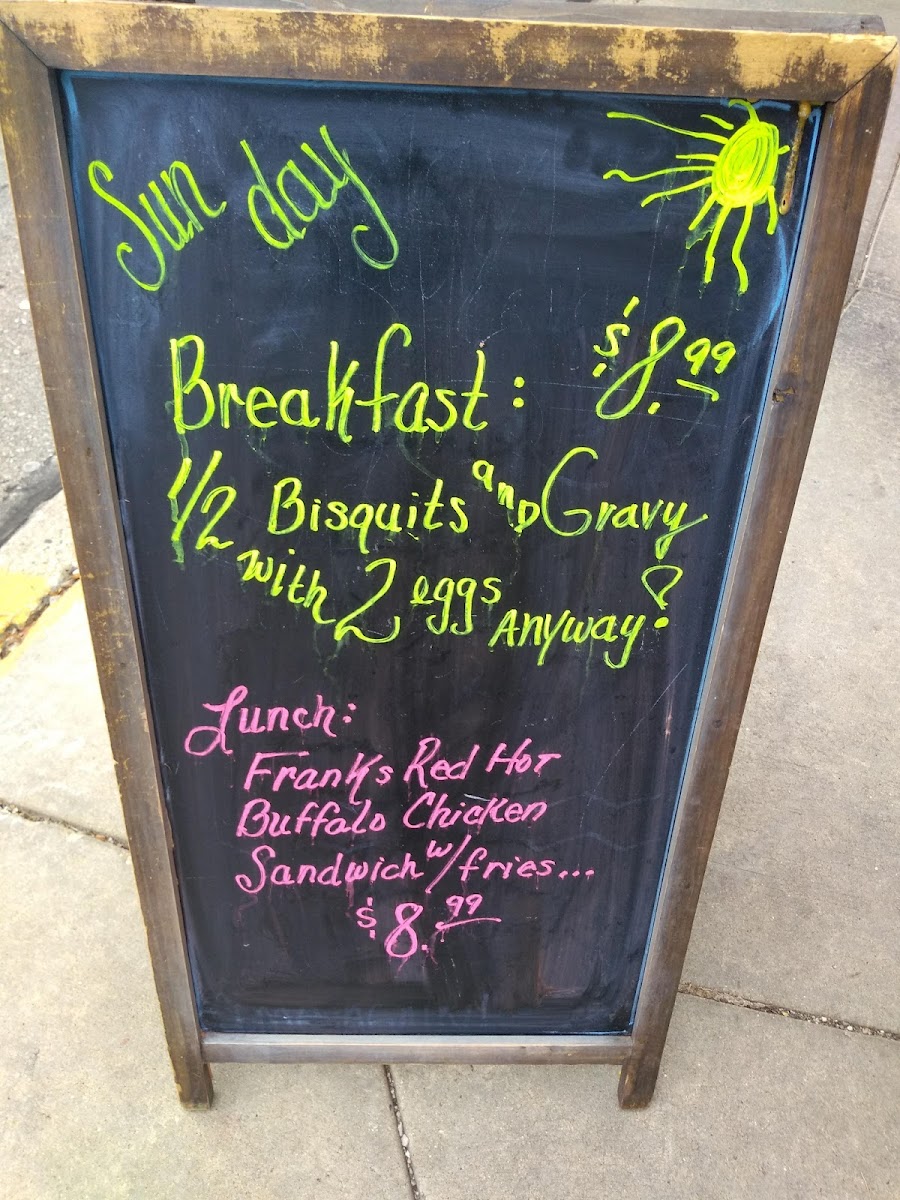 Sun day
Breakfast: $8.99
1/2 Bisquits and Gravy
with 2 eggs Anyway!
Lunch:
Franks Red Hot
Buffalo Chicken
Sandwich w/fries...
$8.99